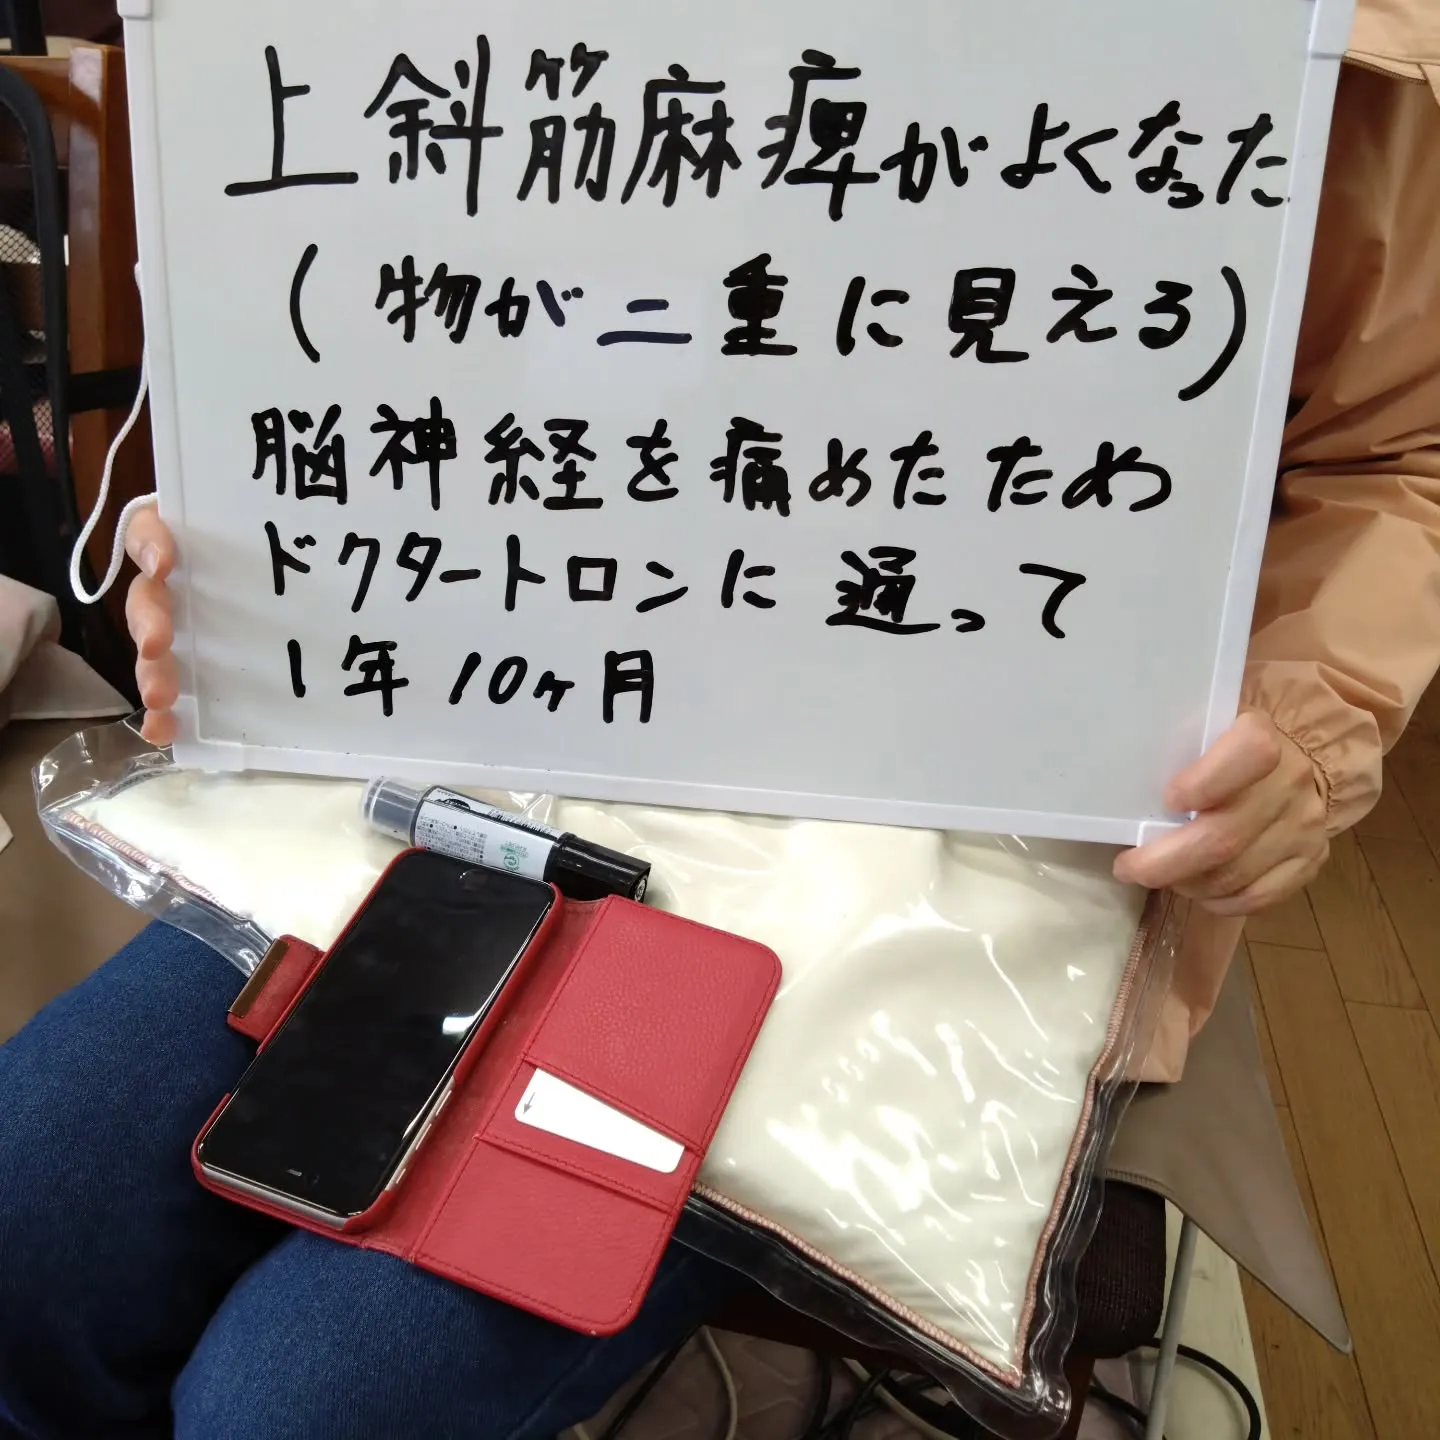 上斜筋麻痺がよくなった
(物が二重に見える)
脳神経を痛めたため
ドクタートロンに通って
1年10ヶ月